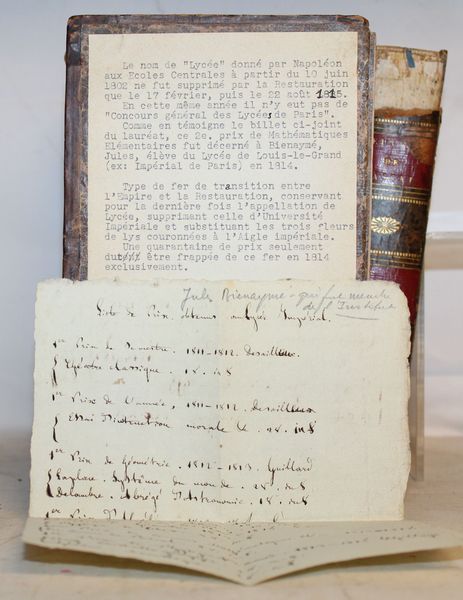 Le nom de "Lycée" donné par Napoléon
aux Ecoles Centrales à partir du 10 juin
1802 ne fut supprimé par la Restauration
que le 17 février, puis le 22 août 1815.
En cette même année il n'y eut pas de
"Concours général des Lycées de Paris".
Comme en témoigne le billet ci-joint
du lauréat, ce 2e. prix de Mathématiques
Elémentaires fut décerné à Bienaymé,
Jules, élève du Lycée de Louis-le-Grand
(ex: Impérial de Paris) en 1814.
Type de fer de transition entre
l'Empire et la Restauration, conservant
pour la dernière fois l'appellation de
Lycée, supprimant celle d'Université
Impériale et substituant les trois fleurs
de lys couronnées à l'Aigle impériale.
Une quarantaine de prix seulement
dut être frappée de ce fer en 1814
exclusivement.
Jules Bienaymé - qui fut membre
de l'Institut
Liste de Prix obtenus au Lycée Impérial.
1er Prix de Semestre. 1811-1812.
Théâtre classique. 1 8. in 8
1er Prix de l'année, 1811-1812.
Essai d'instruction morale &c. 2 8. in 8
1er Prix de Géométrie. 1812-1813. Guillard
Laplace. Système du monde. 2 8. in 8
Delambre. Abrégé d'Astronomie. 1 8. in 8
1er Prix